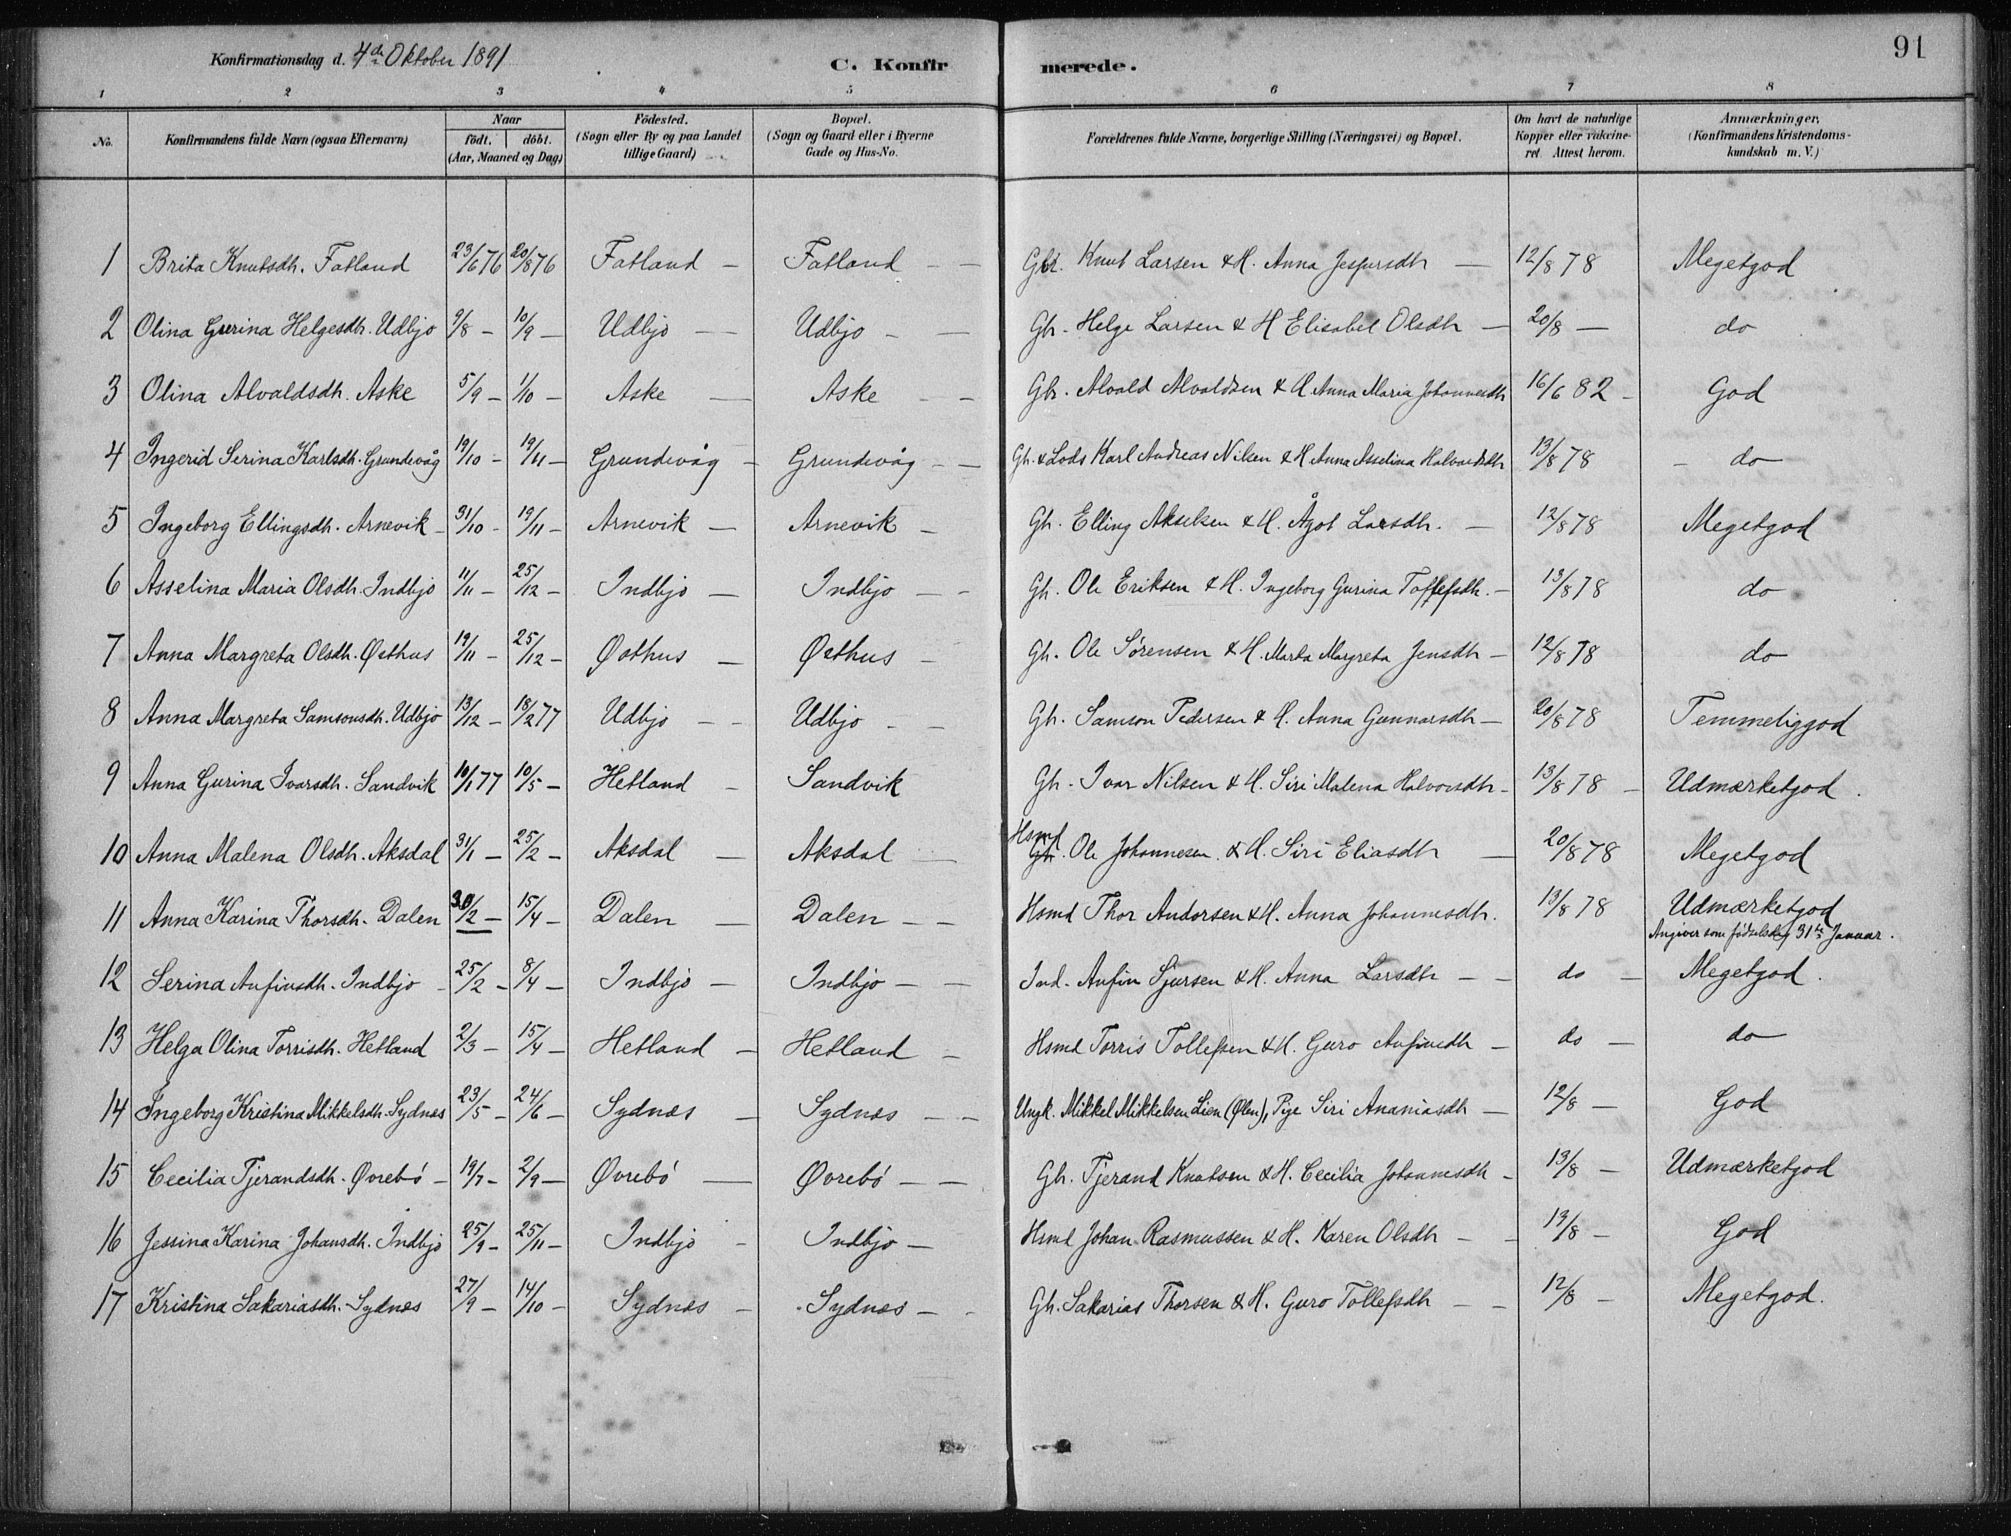 Konfirmationsdag d. 4de Oktober 1891 C. Konfirmerede. 91
1 2 3 4 5 6 7 8
No. Konfirmandens fulde Navn (ogsaa Efternavn) Naar födt. döbt. (Aar, Maaned og Dag) Födested. (Sogn eller By og paa Landet tillige Gaard) Bopæl. (Sogn og Gaard eller i Byerne Gade og Hus-No. Forældrenes fulde Navne, borgerlige Stilling (Næringsvei) og Bopæl. Om havt de naturlige Kopper eller vakcineret. Attest herom. Anmærkninger, (Konfirmandens Kristendomskundskab m. V.)
1 Brita Knutsdh. Fatland 23/6 76 20/8 76 Fatland — Fatland — — Gbr. Knut Larsen & H. Anna Jespersdh — 12/8 78 Megetgod
2 Olina Gurina Helgesdh. Udbjo 9/8 — 10/9 — Udbjo — Udbjo — — Gb. Helge Larsen & H Elisabet Olsdh — 20/8 — do
3 Olina Alvaldsdh. Aske 5/9 — 1/10 — Aske — Aske — — Gb. Alvald Alvaldsen & H Anna Maria Johannesdh 16/6 82 — God
4 Ingerid Serina Karlsdh. Grundevåg 19/10 — 19/11 — Grundevåg — Grundevåg — — Gb. & Lods Karl Andreas Nilsen & H Anna Asselina Halvardsdh 13/8 78 — do
5 Ingeborg Ellingsdh. Arnevik — 31/10 — 19/11 — Arnevik — Arnevik — Gb. Elling Akselsen & H. Ågot Larsdh. — 12/8 78 Megetgod
6 Asselina Maria Olsdh. Indbjo 11/11 — 25/12 — Indbjo — Indbjo — — Gb. Ole Eriksen & H. Ingeborg Gurina Toffefsdh. — 13/8 78 do
7 Anna Margreta Olsdh. Østhus 19/11 — 25/12 — Østhus — Østhus — Gb. Ole Sørensen & H. Marta Margreta Jensdh — 12/8 78 do
8 Anna Margreta Samsonsdh. Udbjo 13/12 — 18/2 77 Udbjo — — Udbjo — — Gb. Samson Pedersen & H. Anna Gunnarsdh — 20/8 78 Temmeliggod
9 Anna Gurina Ivarsdh. Sandvik 10/1 77 10/5 — Hetland — Sandvik Gb. Ivar Nilsen & H. Siri Malena Halvorsdh — 13/8 78 — Udmærketgod.
10 Anna Malena Olsdh. Aksdal 31/1 — 25/2 — Aksdal — Aksdal — Hsmd Gb. Ole Johannesen & H. Siri Eliasdh — 20/8 78 Megetgod
11 Anna Karina Thorsdh. Dalen 30/2 — 15/4 — Dalen — Dalen — — Hsmd Thor Andersen & H. Anna Johannesdh. 13/8 78 Udmærketgod
Angiver som fødselsdag 31te Januar.
12 Serina Anfinsdh. Indbjo — 25/2 — 8/4 — Indbjo — Indbjo — — Ind. Anfin Sjursen & H. Anna Larsdh — — do — Megetgod.
13 Helga Olina Torrisdh. Hetland 2/3 — 15/4 — Hetland — Hetland — Hsmd Torris Tollefsen & H. Guro Anfinsdh — do — do
14 Ingeborg Kristina Mikkelsdh. Sydnæs 23/5 — 24/6 — Sydnæs — Sydnæs — — Ungk. Mikkel Mikkelsen Lien (Ølen), Pige Siri Ananiasdh — 12/8 — God
15 Cecilia Tjerandsdh. Øvrebö — 19/7 — 2/9 — Øvrebö — Øvrebö — — Gb. Tjerand Knutsen & H. Cecilia Johannesdh — 13/8 — Udmærketgod
16 Jessina Karina Johansdh. Indbjo 25/9 — 25/11 — Indbjo — Indbjo — Hsmd Johan Rasmussen & H. Karen Olsdh — — 13/8 — God
17 Kristina Sakariasdh. Sydnes 27/9 — 14/10 — Sydnæs — Sydnæs — — Gb. Sakarias Thorsen & H. Guro Tollefsdh — — 12/8 — Megetgod.